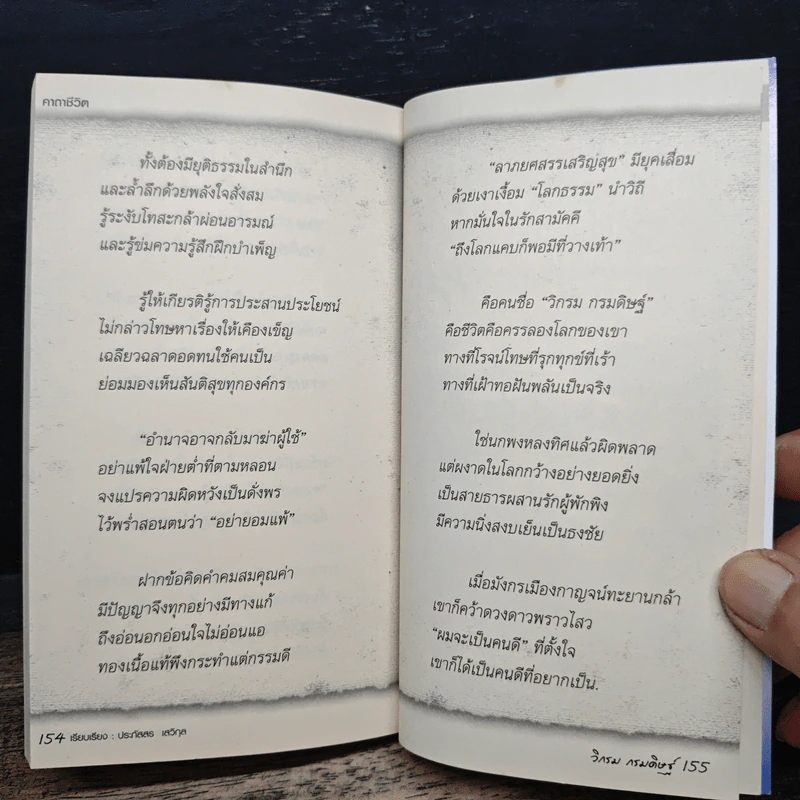 คาถาชีวิต
ทั้งต้องมียุติธรรมในสำนึก
และล้ำลึกด้วยพลังใจสั่งสม
รู้ระงับโทสะกล้าผ่อนอารมณ์
และรู้ข่มความรู้สึกฝึกบำเพ็ญ
รู้ให้เกียรติรู้การประสานประโยชน์
ไม่กล่าวโทษหาเรื่องให้เคืองเข็ญ
เฉลียวฉลาดอดทนใช้คนเป็น
ย่อมมองเห็นสันติสุขทุกองค์กร
“อำนาจอาจกลับมาฆ่าผู้ใช้”
อย่าแพ้ใจฝ่ายต่ำที่ตามหลอน
จงแปรความผิดหวังเป็นดั่งพร
ไว้พร่ำสอนตนว่า “อย่ายอมแพ้”
ฝากข้อคิดคำคมสมคุณค่า
มีปัญญาจึงทุกอย่างมีทางแก้
ถึงอ่อนอกอ่อนใจไม่อ่อนแอ
ทองเนื้อแท้พึงกระทำแต่กรรมดี
154 เรียบเรียง : ประภัสสร เสวิกุล
“ลาภยศสรรเสริญสุข” มียุคเสื่อม
ด้วยเงาเงื้อม “โลกธรรม” นำวิถี
หากมั่นใจในรักสามัคคี
“ถึงโลกแคบก็พอมีที่วางเท้า”
คือคนชื่อ “วิกรม กรมดิษฐ์”
คือชีวิตคือครรลองโลกของเขา
ทางที่โรจน์โทษที่รุกทุกข์ที่เร้า
ทางที่เฝ้าทอฝันพลันเป็นจริง
ใช่นกพงหลงทิศแล้วผิดพลาด
แต่ผงาดในโลกกว้างอย่างยอดยิ่ง
เป็นสายธารผสานรักผู้พักพิง
มีความนิ่งสงบเย็นเป็นธงชัย
เมื่อมังกรเมืองกาญจน์ทะยานกล้า
เขาก็คว้าดวงดาวพราวไสว
“ผมจะเป็นคนดี” ที่ตั้งใจ
เขาก็ได้เป็นคนดีที่อยากเป็น.
วิกรม กรมดิษฐ์ 155